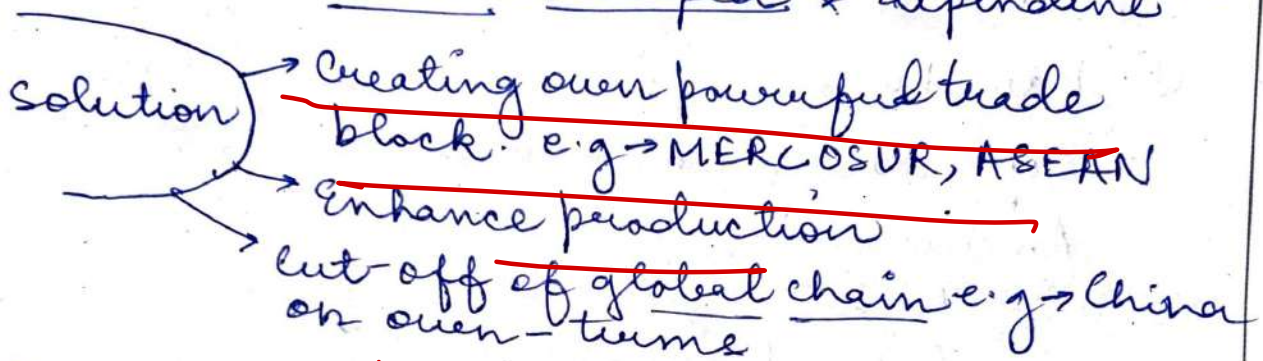 & dependent
Solution
→ Creating own powerful trade
block. e.g → MERCOSUR, ASEAN
→ Enhance production
→ Cut-off of global chain e.g → China
on own-terms